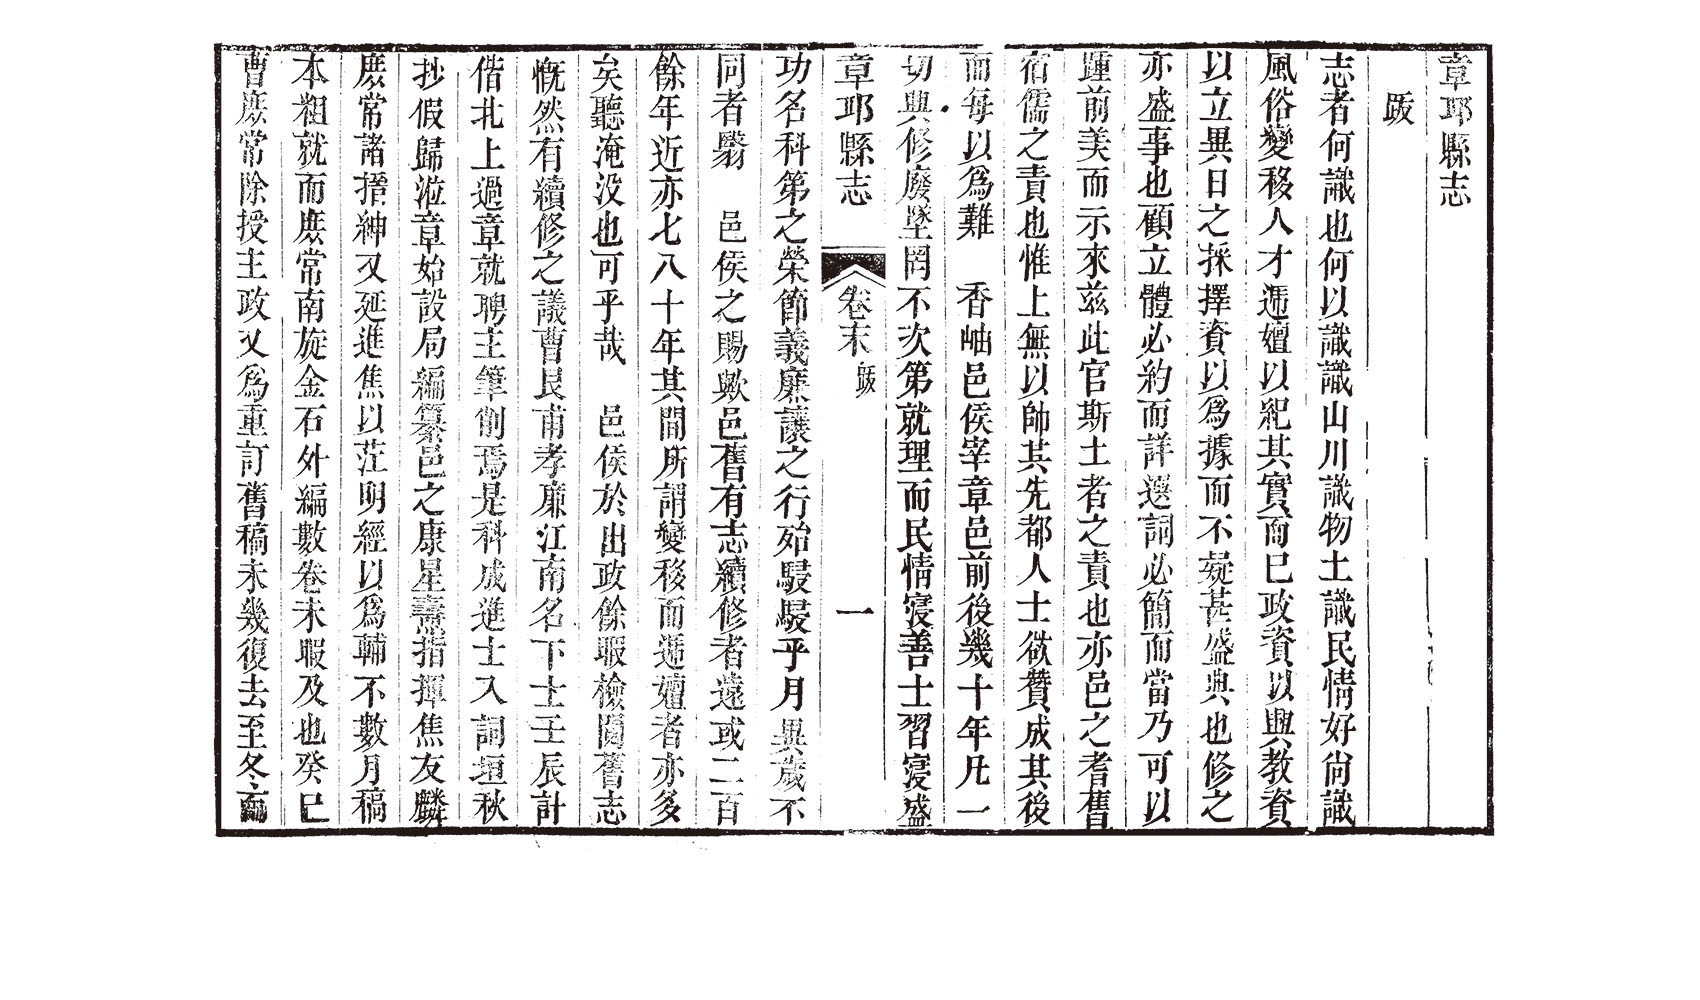 章邱縣志
跋
志者何識也何以識識山川識物土識民情好尙識
風俗變移人才遞嬗以紀其實而已政資以興教資
以立異日之採擇資以爲據而不疑甚盛典也修之
亦盛事也顧立體必約而詳選詞必簡而當乃可以
踵前美而示來茲此官斯土者之責也亦邑之耆舊
宿儒之責也惟上無以帥其先都人士欲贊成其後
而每以爲難　香岫邑侯宰章邑前後幾十年凡一
切興修廢墜罔不次第就理而民情寖善士習寖盛
章邱縣志
卷末跋
一
功名科第之榮節義廉讓之行殆駸駸乎月異歲不
同者翳　邑侯之賜歟邑舊有志續修者遠或二百
餘年近亦七八十年其間所謂變移而遞嬗者亦多
矣聽淹沒也可乎哉　邑侯於出政餘暇檢閱舊志
慨然有續修之議曹艮甫孝廉江南名下士壬辰計
偕北上過章就聘主筆削焉是科成進士入詞垣秋
抄假歸涖章始設局編纂邑之康星燾指揮焦友麟
庶常諸搢紳又延進焦以莊明經以爲輔不數月稿
本粗就而庶常南旋金石外編數卷未暇及也癸巳
曹庶常除授主政又爲重訂舊稿未幾復去至冬